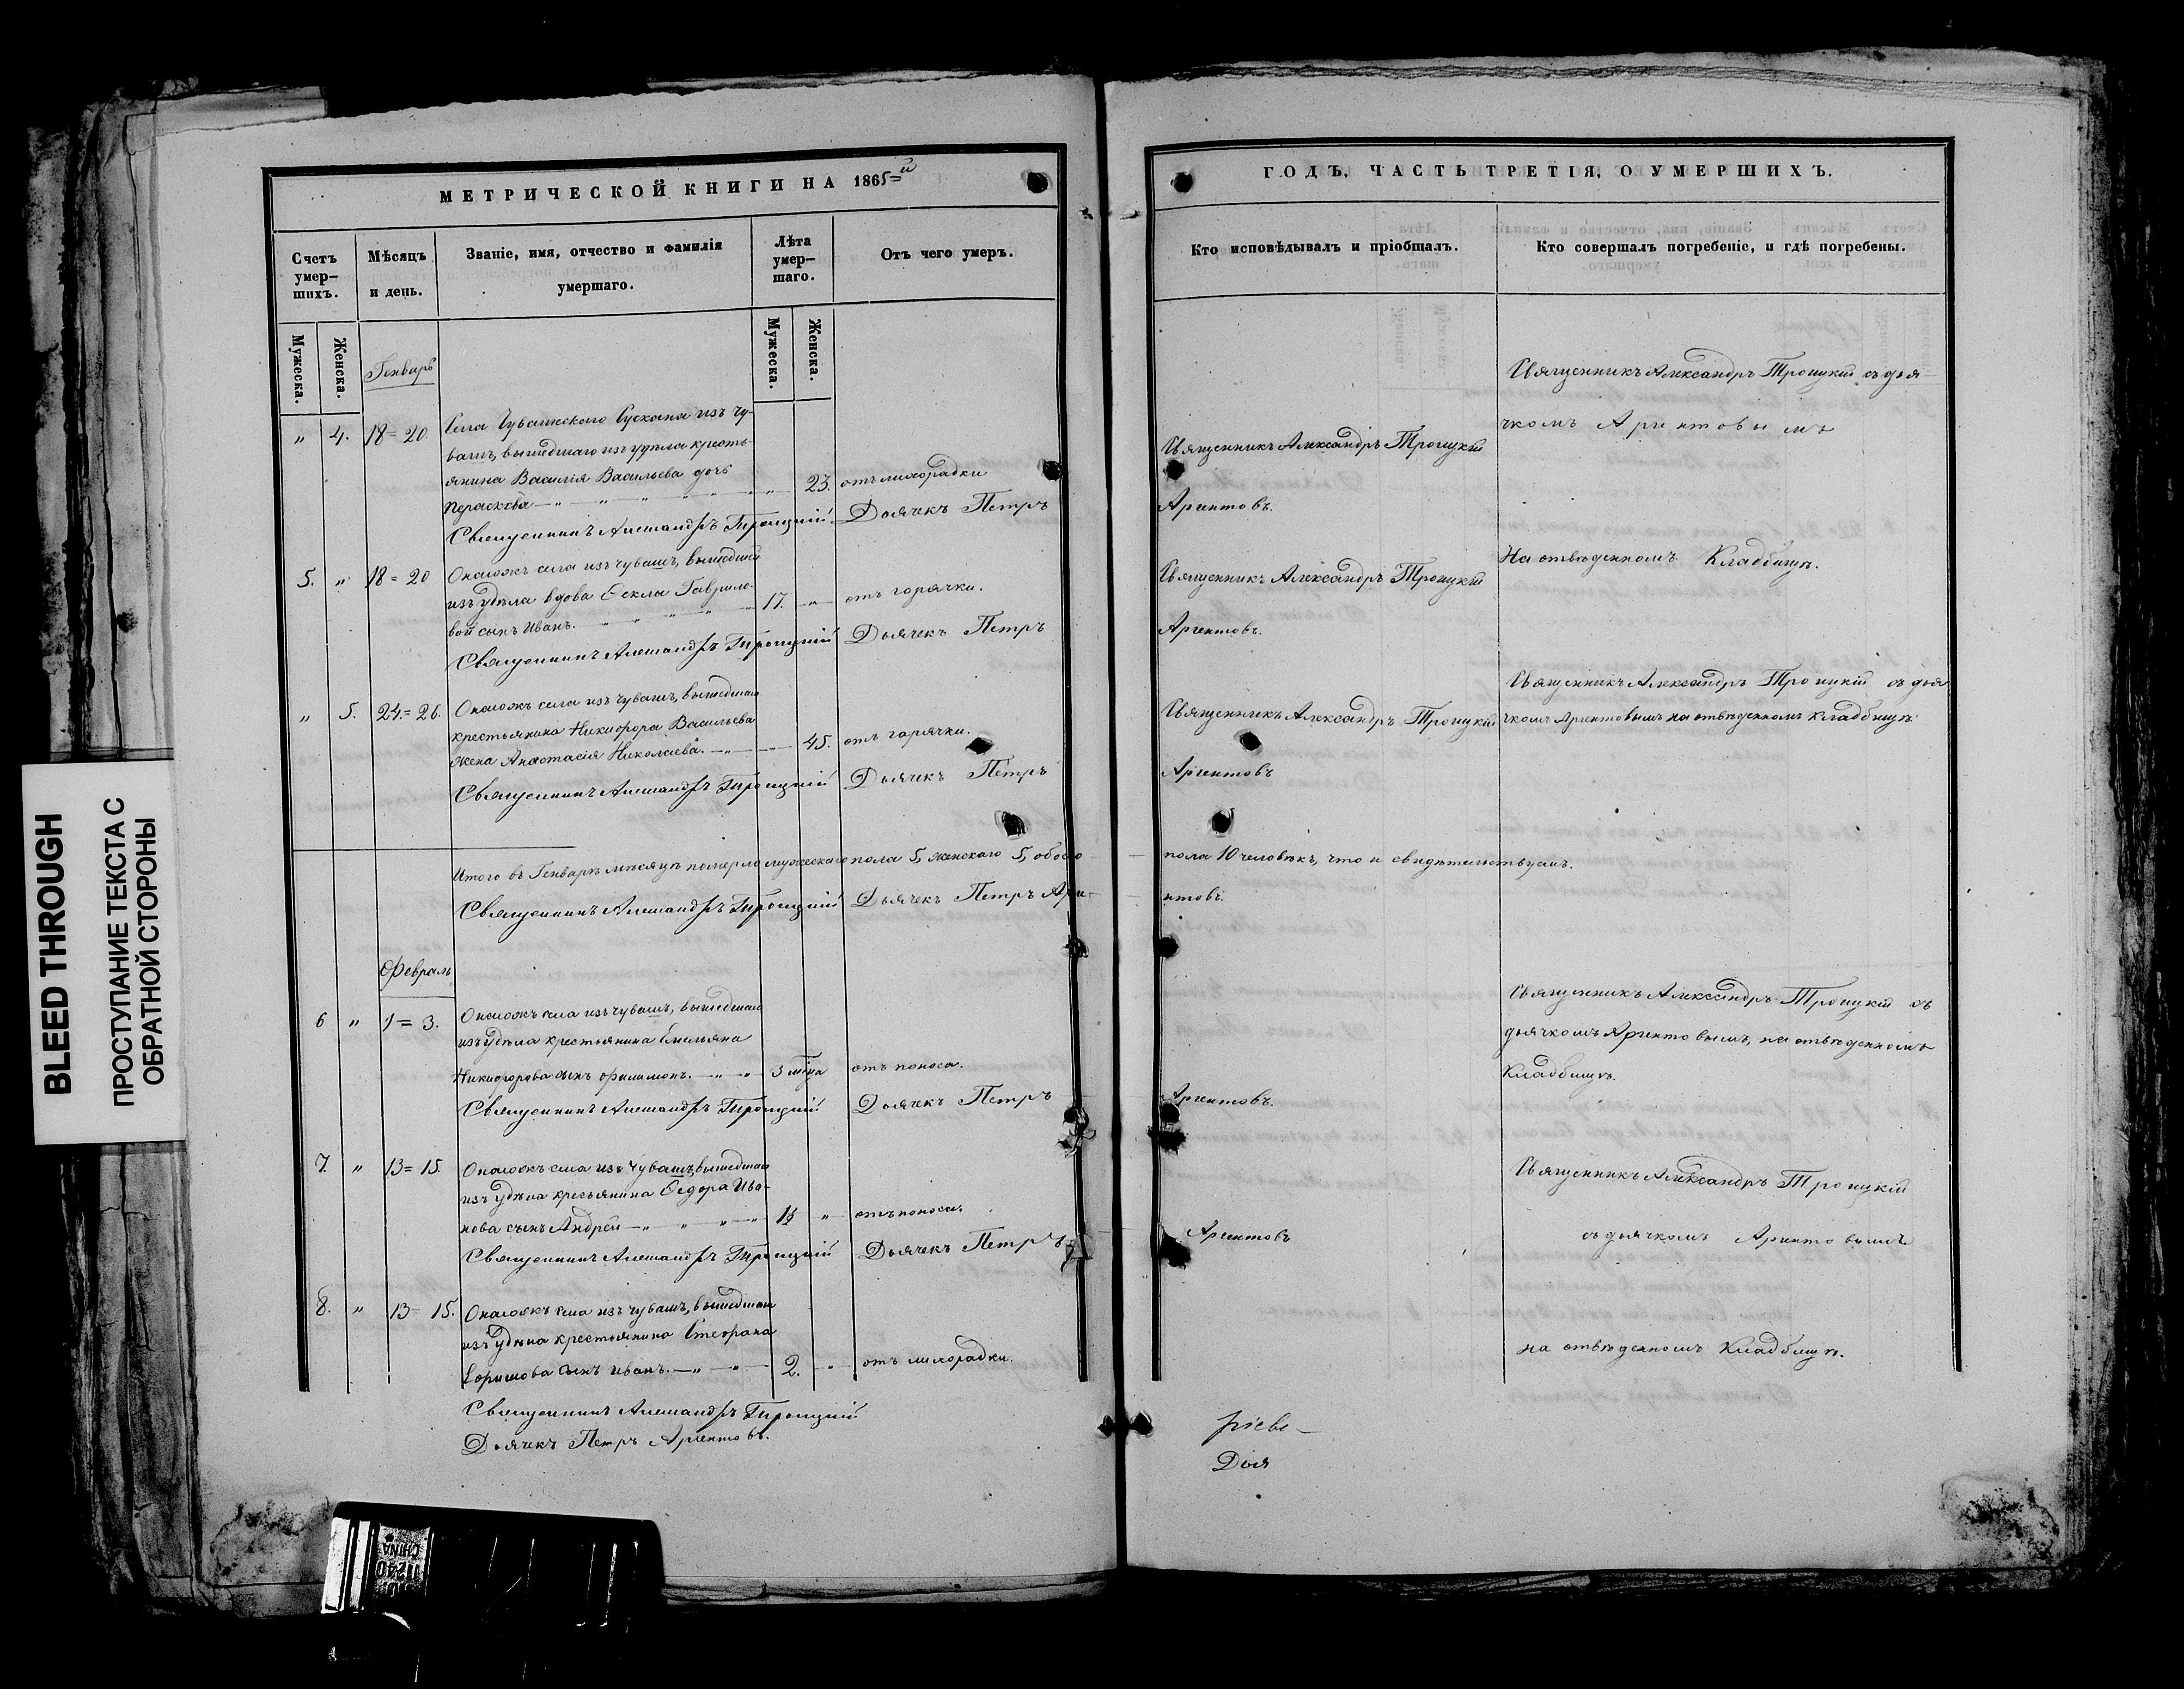 МЕТРИЧЕСКОЙ КНИГИ НА 1865=й
Счетъ умер-шихъ.
Мѣсяцъ и день.
Званіе, имя, отчество и фамилія умершаго.
Лѣта умер-шаго.
Отъ чего умеръ.
Мужеска.
Женска.
Мужеска.
Женска.
Генварь
" 4. 18=20. Села Чувашскаго Сускана изъ чу-
вашъ, вышедшаго изъ удѣла кресть-
янина Василія Васильева дочь
Параскева — " " " " 23. отъ лихорадки
Священникъ Александръ Троицкій Дьячекъ Петръ
5. " 18=20 Онагожъ села изъ чувашъ, вышедшей
изъ удѣла вдова Ѳеклы Гаврило-
вой сынъ Иванъ. — " " " 17. " отъ горячки.
Священникъ Александръ Троицкій Дьячекъ Петръ
" 5. 24=26. Онагожъ села изъ чувашъ, вышедшаго
крестьянина Никифора Васильева
жена Анастасія Николаева. — " 45. отъ горячки.
Священникъ Александръ Троицкій Дьячекъ Петръ
Итого въ Генварѣ мѣсяцѣ померло мужескаго пола 5, женскаго 5, обоего
Священникъ Александръ Троицкій Дьячекъ Петръ Арге-
Февраль
6 " 1=3. Онагожъ села изъ чувашъ, вышедшаго
изъ удѣла крестьянина Емельяна
Никифорова сынъ Филимонъ. — " — " 3 мѣца отъ поноса.
Священникъ Александръ Троицкій Дьячекъ Петръ
7. " 13=15. Онагожъ села изъ чувашъ, вышедшаго
изъ удѣла кресьянина Ѳедора Ива-
нова сынъ Андрей — " " " — " 1½ " отъ поноса.
Священникъ Александръ Троицкій Дьячекъ Петръ
8. " 13=15. Онагожъ села изъ чувашъ, вышедшаго
изъ удѣла крестьянина Стефана
Ефимова сынъ Иванъ. — " — " 2. " отъ лихорадки.
Священникъ Александръ Троицкій
Дьячекъ Петръ Аргентовъ.
ГОДЪ, ЧАСТЬ ТРЕТІЯ, О УМЕРШИХЪ.
Кто исповѣдывалъ и пріобщалъ.
Кто совершалъ погребеніе, и гдѣ погребены.
Священникъ Александръ Троицкій съ дья
чкомъ Аргентовымъ
Священникъ Александръ Троицкій
Аргентовъ.
На отвѣденномъ Кладбищѣ.
Священникъ Александръ Троицкій
Аргентовъ.
Священникъ Александръ Троицкій съ дья
Священникъ Александръ Троицкій
чкомъ Аргентовымъ на отвѣденномъ кладбищѣ
Аргентовъ
пола 10 человѣкъ, что и свидѣтельствуемъ.
нтовъ.
Священникъ Александръ Троицкій съ
дьячкомъ Аргентовымъ, на отвѣденномъ
Кладбищѣ.
Аргентовъ.
Священникъ Александръ Троицкій
Аргентовъ
съ дьячкомъ Аргентовымъ
на отвѣденномъ Кладбищѣ.
Дья
BLEED THROUGH
ПРОСТУПАНИЕ ТЕКСТА С
ОБРАТНОЙ СТОРОНЫ
CHINA